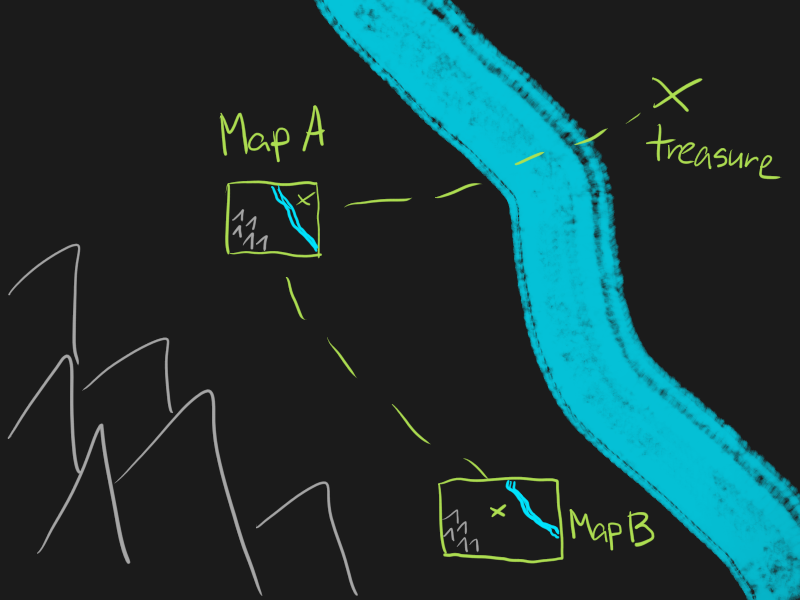 Map A
treasure
Map B